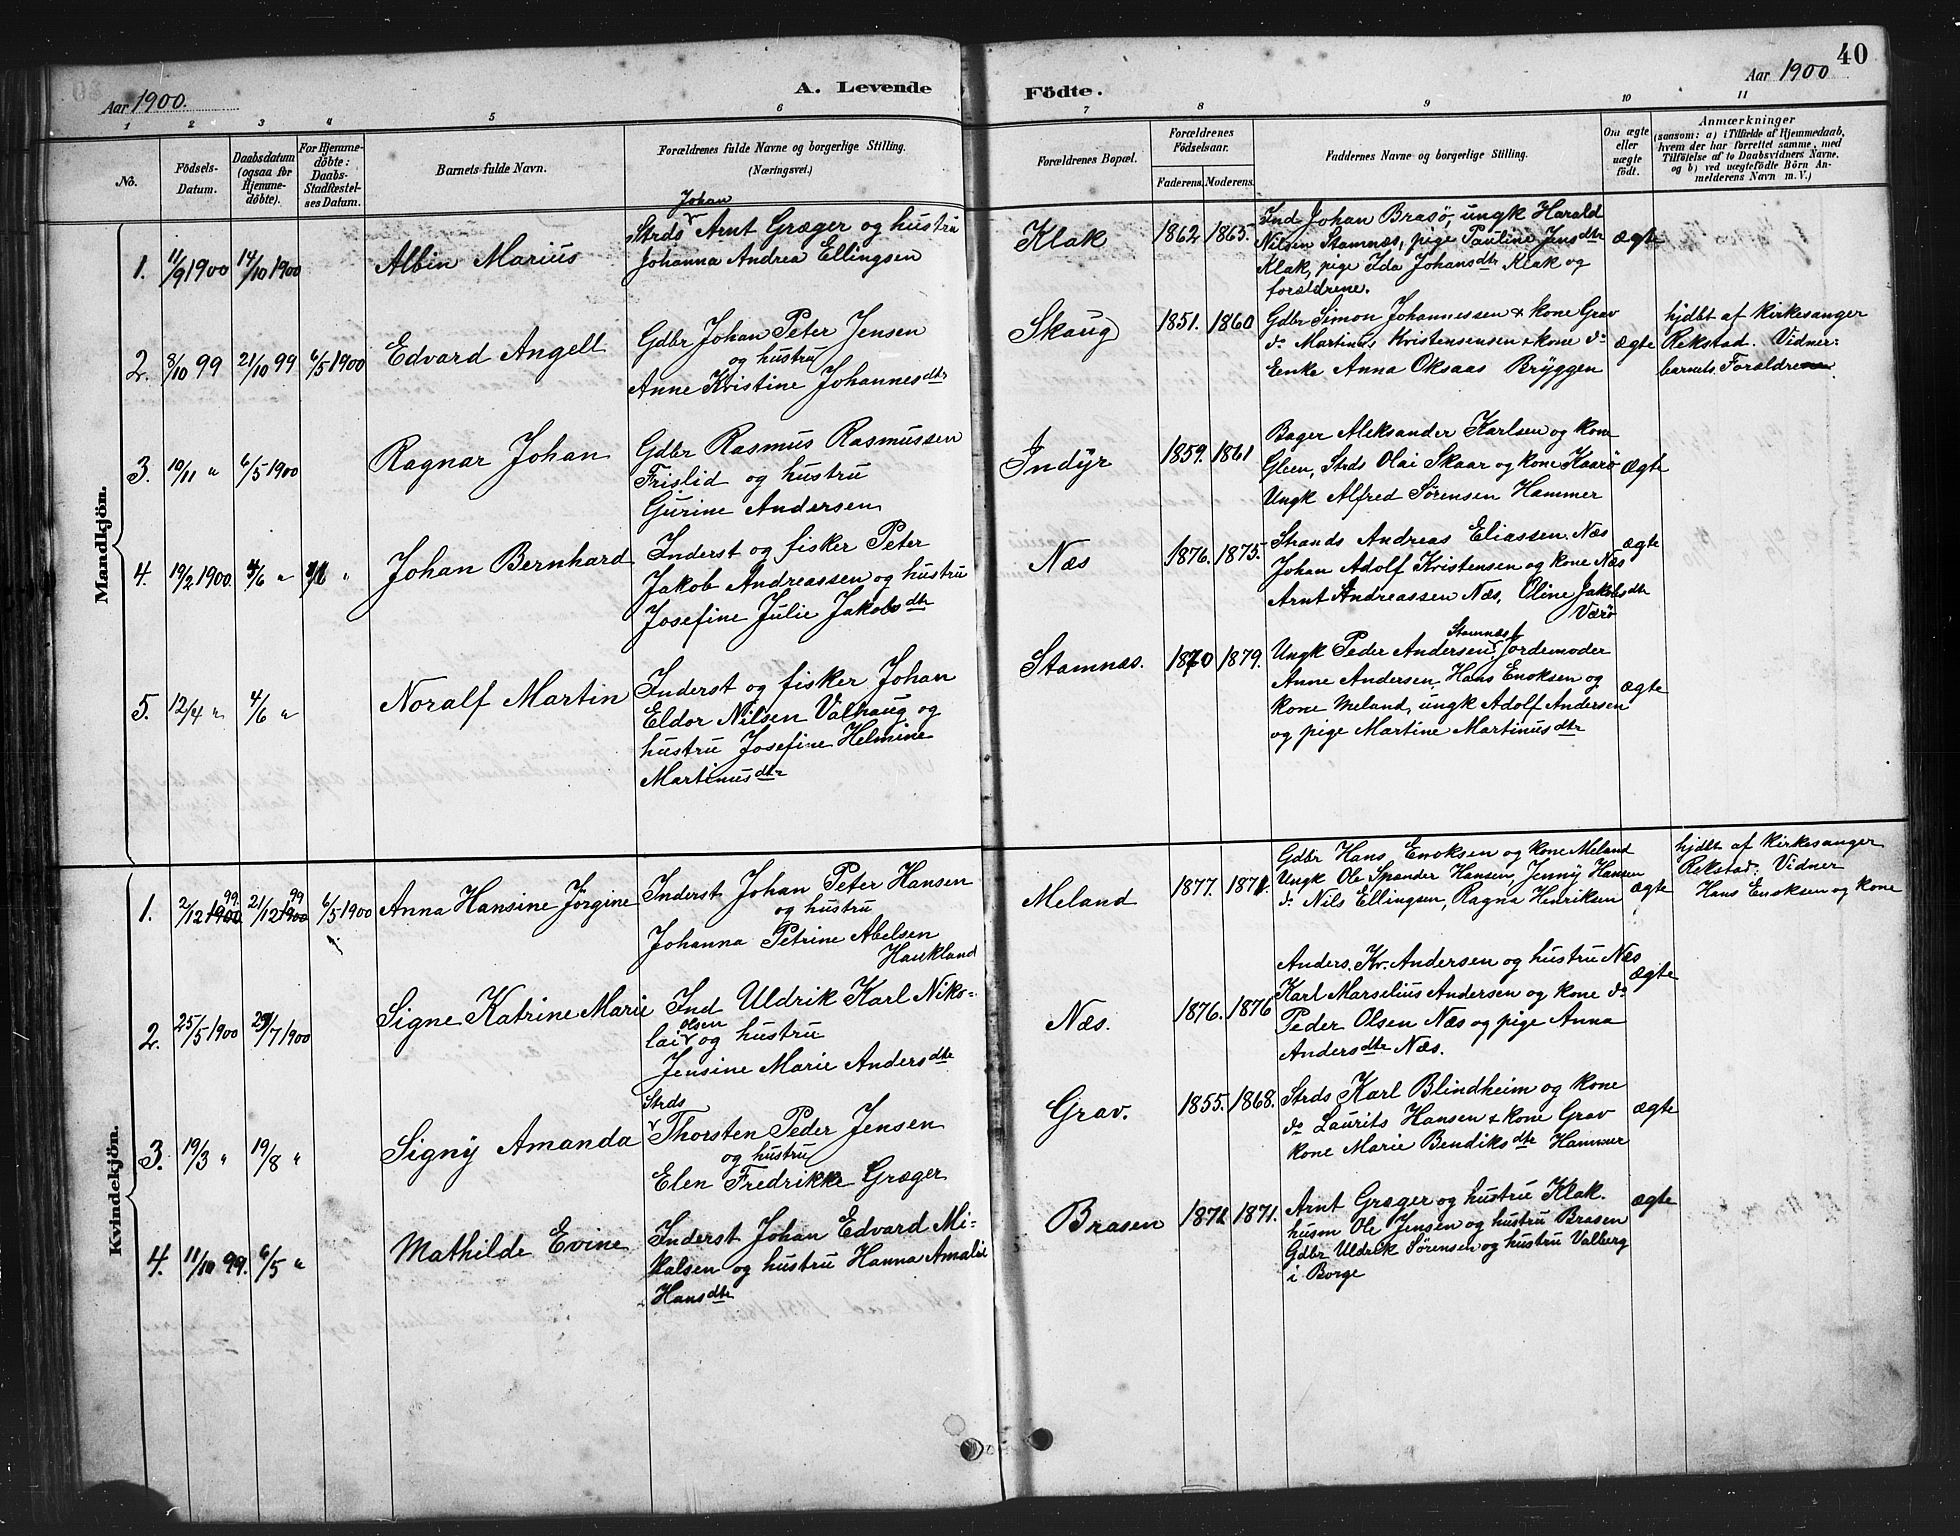 Aar 1900.
A. Levende
Födte.
Aar 1900
40
1 2 3 4 5 6 7 8 9 10 11
No.
Födsels-
Datum.
Daabsdatum
(ogsaa for
Hjemme-
döbte).
For Hjemme-
döbte:
Daabs-
Stadfæstel-
ses Datum.
Barnets fulde Navn.
Forældrenes fulde Navne og borgerlige Stilling.
(Næringsvei.)
Forældrenes Bopæl.
Forældrenes
Födselsaar.
Faderens. Moderens.
Faddernes Navne og borgerlige Stilling.
Om ægte
eller
uægte
födt.
Anmærkninger
(saasom: a) i Tilfælde af Hjemmedaab,
hvem der har forrettet samme, med
Tilföielse af to Daabsvidners Navne,
og b) ved uægtefödte Börn An-
melderens Navn m. V.)
Mandkjön.
1. 11/9 1900 14/10 1900 Albin Marius
Johan
Strds Arnt Græger og hustru
Johanna Andrea Ellingsen
Klak 1862 1865.
Ind Johan Brasø, ungk Harald
Nilsen Stamnæs, pige Pauline Jensdtr
Klak, pige Ida Johansdtr Klak og
forældrene.
ægte
2. 8/10 99 21/10 99 6/5 1900 Edvard Angell
Gdbr Johan Peter Jensen
og hustru
Anne Kristine Johannesdtr
Skaug 1851. 1860
Gdbr Simon Johannessen & kone Grav
do Martinus Kristensensen & kone do
Enke Anna Oksaas Bryggen
ægte
hjdbt af kirkesanger
Rekstad. Vidner:
barnets Forældrene
3. 10/11 " 6/5 1900 Ragnar Johan
Gdbr Rasmus Rasmussen
Frislid og hustru
Gurine Andersen
Indyr 1859. 1861
Bager Aleksander Karlsen og kone
Gleen, Strds Olai Skaar og kone Kaarø
Ungk Alfred Sørensen Hammer
ægte
4. 19/2 1900. 4/6 " "
Johan Bernhard
Inderst og fisker Peter
Jakob Andreassen og hustru
Josefine Julie Jakobsdtr
Næs 1876. 1875.
Strands Andreas Eliassen Næs
Johan Adolf Kristensen og kone Næs
Arnt Andreassen Næs, Oline Jakobsdtr
Værø
ægte
5. 12/4 " 4/6 " Noralf Martin
Inderst og fisker Johan
Eldor Nilsen Valhaug og
hustru Josefine Helmine
Martinusdtr
Stamnæs. 1870 1879.
Stamnæs
Ungk Peder Andersen Jordemoder
Anne Andersen, Hans Enoksen og
kone Meland, ungk Adolf Andersen
og pige Martine Martinusdtr
ægte
Kvindekjön.
1. 2/12 1900 99 21/12 1900 99 6/5 1900 Anna Hansine Jørgine
Inderst Johan Peter Hansen
og hustru
Johanna Petrine Abelsen
Haukland
Meland 1877. 1871.
Gdbr Hans Enoksen og kone Meland
Ungk Ole Spander Hansen, Jenny Hansen
do Nils Ellingsen, Ragna Henriksen
ægte
hjdbt af kirkesanger
Rekstad: Vidner
Hans Enoksen og kone
2. 25/5 1900 29/7 1900 Signe Katrine Marie
Ind Uldrik Karl Niko-
olsen
lai og hustru
Jensine Marie Andersdtr
Næs. 1876. 1876
Anders. Kr. Andersen og hustru Næs
Karl Marselius Andersen og kone do
Peder Olsen Næs og pige Anna
Andersdtr Næs.
ægte
3. 19/3 " 19/8 " Signy Amanda
Strds
Thorsten Peder Jensen
og hustru
Elen Fredrikke Græger
Grav. 1855. 1868.
Strds Karl Blindheim og kone
do Laurits Hansen & kone Grav
kone Marie Bendiksdtr Hammer
ægte
4. 11/10 99. 6/5 " Mathilde Evine
Inderst Johan Edvard Mi-
kalsen og hustru Hanna Amalie
Hansdtr
Brasen 1872 1871.
Arnt Græger og hustru Klak.
husm Ole Jensen og hustru Brasen
Gdbr Uldrik Sørensen og hustru Valberg
i Borge
ægte